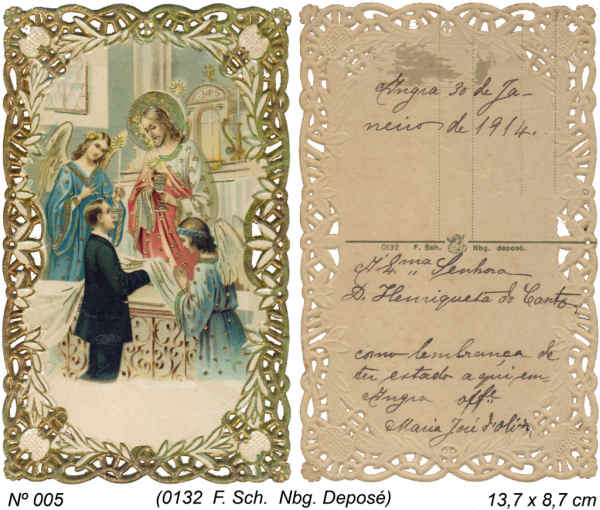 Angra 30 de Ja-
neiro de 1914.
0132 F. Sch. Nbg. deposé.
Senhora
D. Henriqueta do Canto,
como lembrança de
ter estado aqui em
Angra offe.
Maria José d'Oliv.
Nº 005
(0132 F. Sch. Nbg. Deposé)
13,7 x 8,7 cm